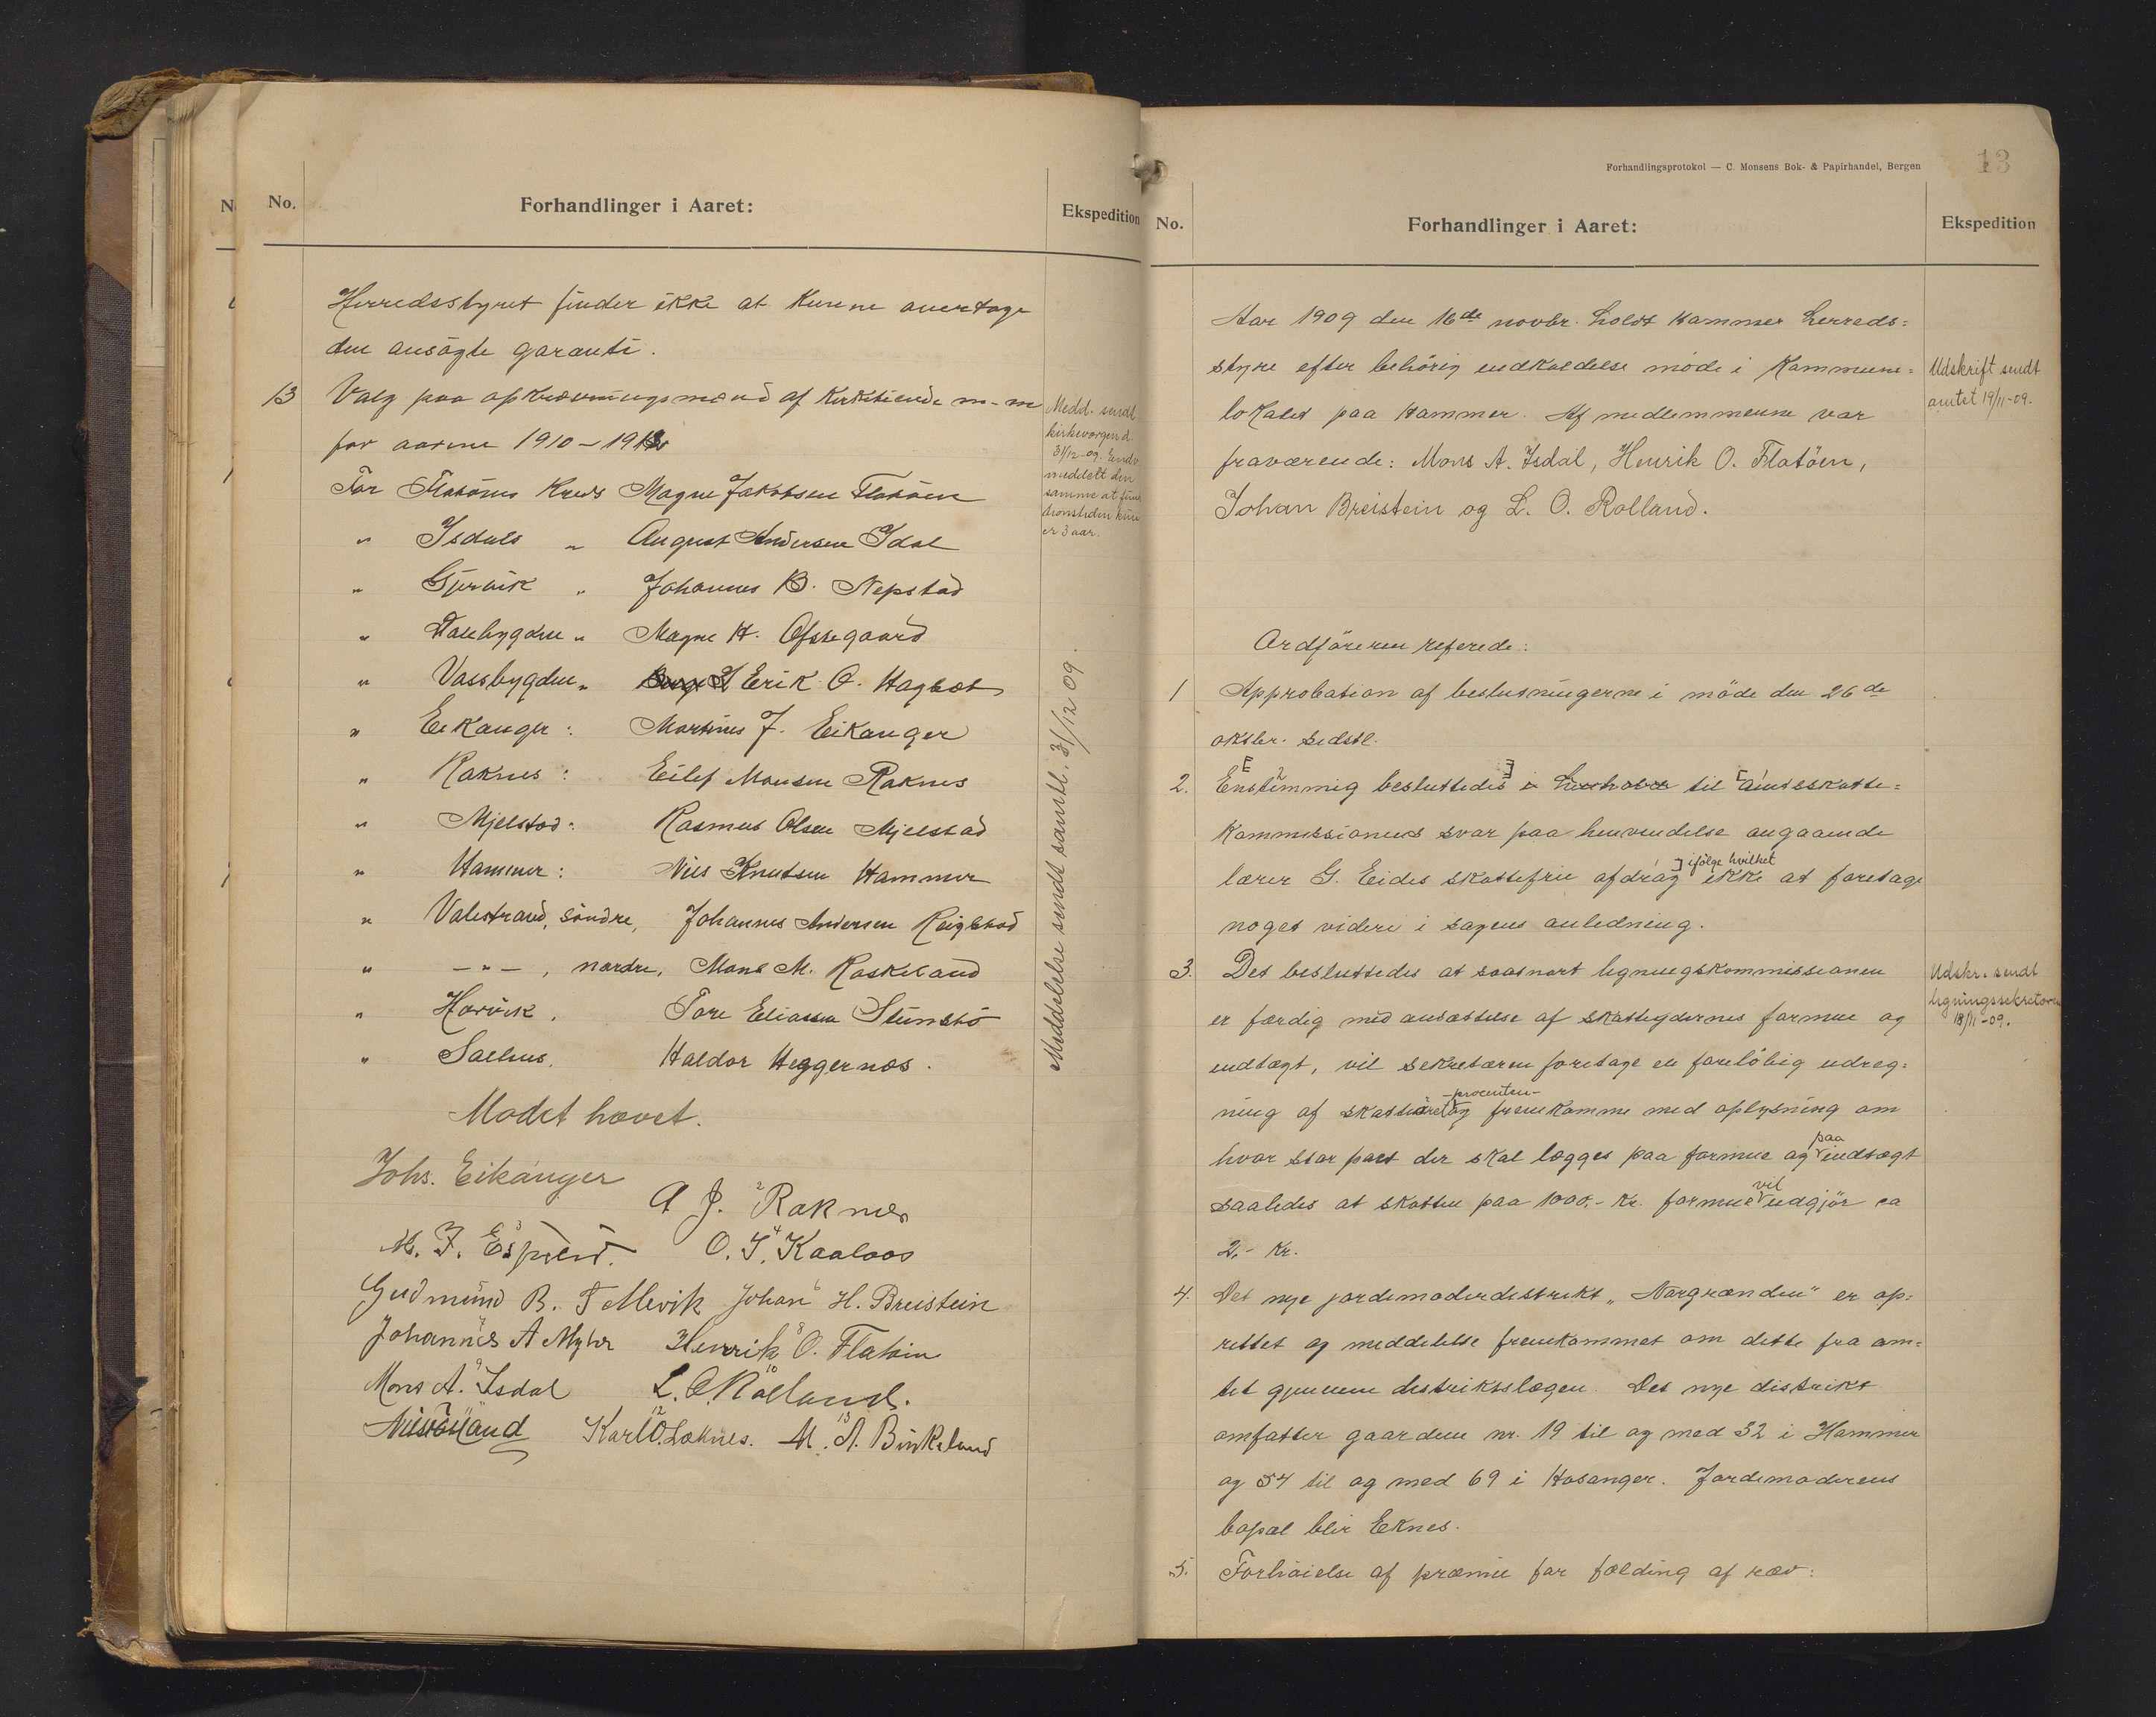 No.
Forhandlinger i Aaret:
Ekspedition
Herredsstyret finder ikke at kunne overtage
den ansøgte garanti.
13 Valg paa opkrævningsmænd af kirketiende m-m
for aarene 1910-1912
For Flatöens Kreds Magne Jakobsen Flatöen
" Isdals " August Andersen Isdal
" Gjervik " Johannes B. Nepstad
" Dalebygden " Magne H. Ofstegaard
" Vassbygden " Erik O. Hagbøt
" Eikanger : Martinus J. Eikanger
" Raknes : Eilef Monsen Raknes
" Mjelstad : Rasmus Olsen Mjelstad
" Hammer : Nils Knutsen Hammer
" Valestrand, söndre, Johannes Andersen Reigstad
" -"- , nordre, Mons M. Roskeland
" Horvik . Tore Eliassen
" Salhus. Haldor Heggernæs.
Modet hævet.
Medd. sendt
kirkevergen d.
31/12-09. Endv
meddelt den
samme at funk
tionstiden kun
er 3 aar.
Meddelelse sendt samtl. 31/12 09.
Johs. Eikanger
A J. Raknes
M. F. Espelid. O. J. Kaalaas
Gudmund B. T Mevik Johan H. Breistein
Johannes A Myhr Henrik O. Flatöen
Mons A. Isdal L. O. Rolland.
Karl O. Loknes. M. A. Birkeland
Forhandlingsprotokol — C. Monsens Bok- & Papirhandel, Bergen
13
No.
Forhandlinger i Aaret:
Ekspedition
Aar 1909 den 16de novbr. holdt Hammer herreds=
styre efter behörig indkaldelse möde i Kommune=
lokalet paa Hammer. Af medlemmerne var
fraværende: Mons A. Isdal, Henrik O. Flatöen,
Johan Breistein og L. O. Rolland.
Udskrift sendt
amtet 19/11-09.
Ordföreren referede:
1 Approbation af beslutningerne i möde den 26de
oktbr. sidstl.
2. [Enstemmig besluttedes] i henhold til [amtsskatte=
kommissionens svar paa henvendelse angaaende
lærer G. Eides skattefrie afdrag] ifölge hvilket ikke at foretage
noget videre i sagens anledning.
3. Det besluttedes at saasnart ligningskommissionen
er færdig med ansættelse af skatteydernes formue og
indtægt, vil sekretæren foretage en forelöbig udreg=
ning af skatteöret -procenten- og fremkomme med oplysning om
hvor stor part der skal lægges paa formue og paa indtægt
saaledes at skatten paa 1000,- Kr. formue vil udgjör ca
2,- Kr.
Udskr. sendt
ligningssekretæren
18/11-09.
4. Det nye jordemoderdistrikt „Norgrænden" er op=
rettet og meddelelse fremkommet om dette fra am=
tet gjennem distriktslægen. Det nye distrikt
omfatter gaardene nr. 19 til og med 32 i Hammer
og 54 til og med 69 i Hosanger. Jordemoderens
bopæl blir Eknes.
5. Forhöielse af præmie for fælding af ræv: